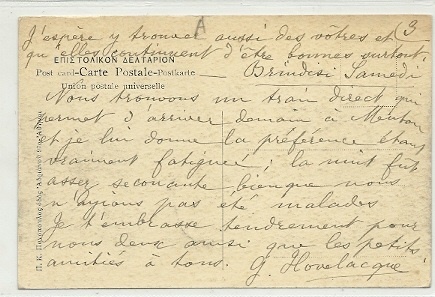 J'espère y trouver aussi des vôtres et (3
qu'elles continuent d'être bonnes surtout.
ΕΠΙΣΤΟΛΙΚΟΝ ΔΕΛΤΑΡΙΟΝ
Post card-Carte Postale-Postkarte
Union postale universelle
Brindisi Samedi
Nous trouvons un train direct qui
permet d'arriver demain à Menton
et je lui donne la préférence étant
vraiment fatiguée ; la nuit fut
assez secouante bienque nous
n'ayions pas été malades
Je t'embrasse tendrement pour
nous deux ainsi que les petits
amitiés à tous. G. Hovelacque